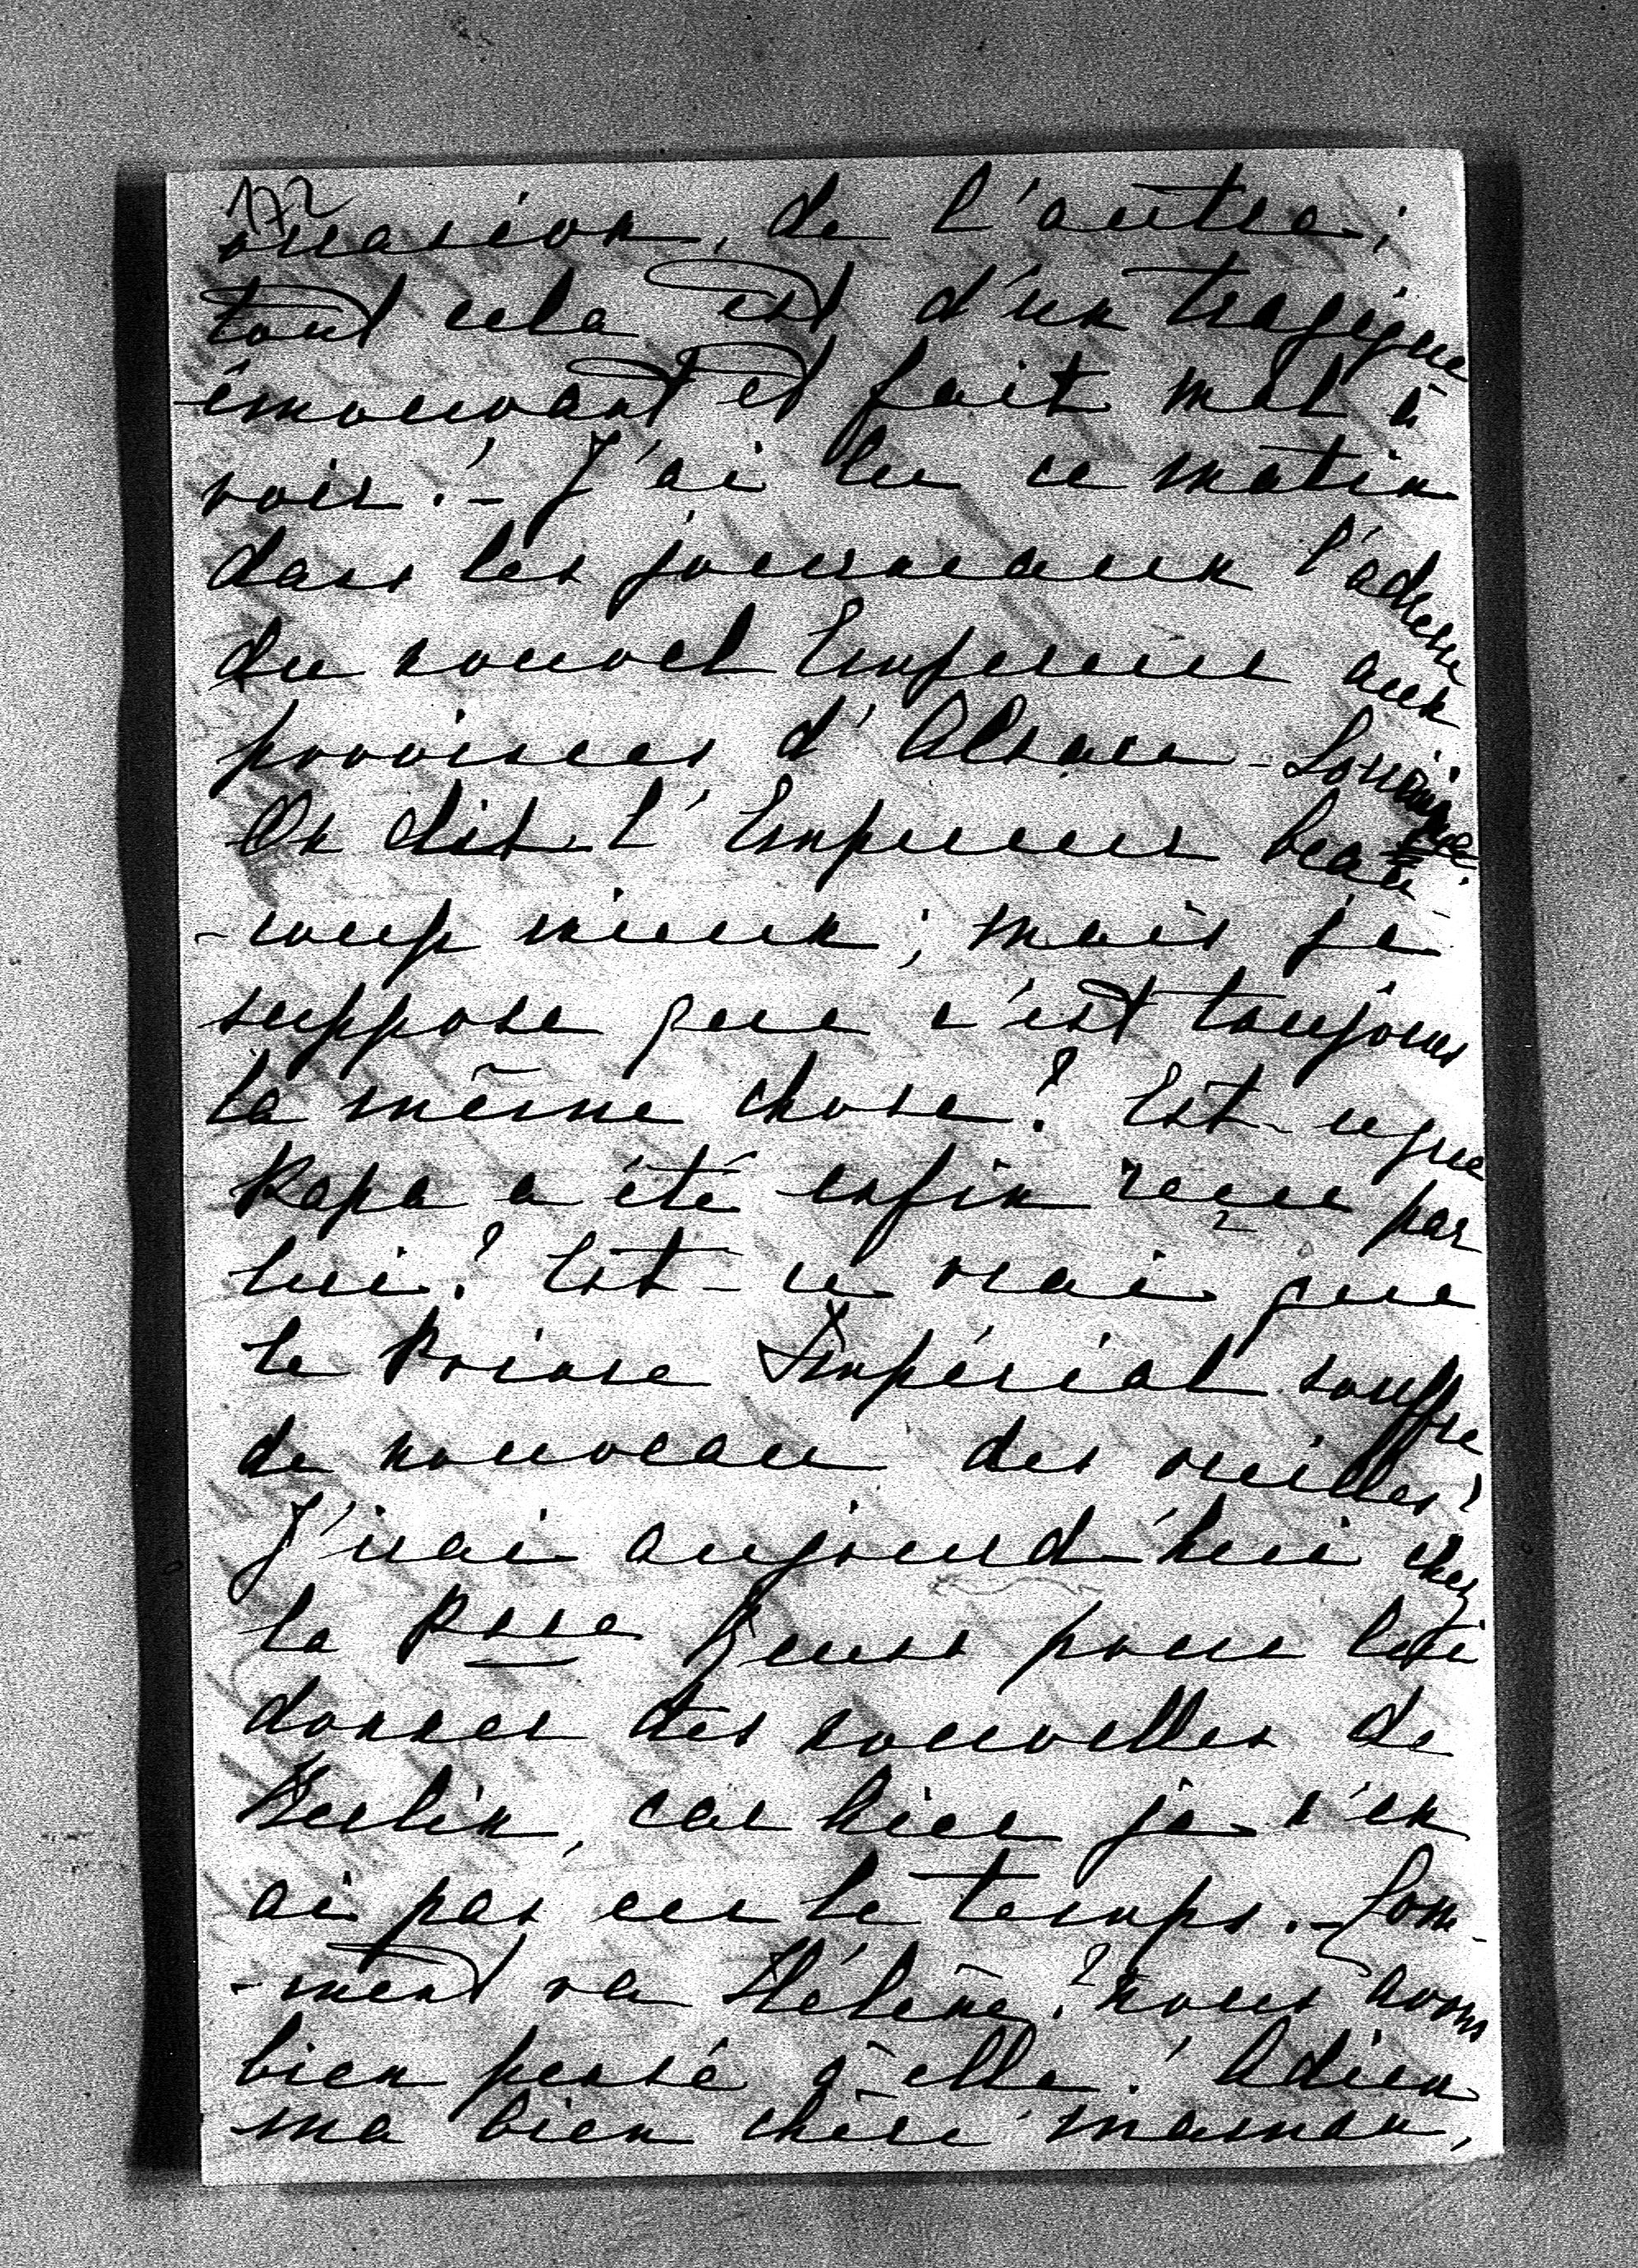 172
occasion, de l'autre;
tout cela est d'un tragique
émouvant et fait mal à
voir! – J'ai lu ce matin
dans les journeaux l'adresse
du nouvel Empereur aux
provinces d'Alsace-Lorraine.
On dit l'Empereur beau-
-coup mieux; mais je
suppose que c'est toujours
la même chose? Est-ce que
Papa a été enfin reçu par
lui? Est-ce vrai que
le Prince Impérial souffre
de nouveau des oreilles?
J'irai aujourd'hui chez
la Psse Reuss pour lui
donner des nouvelles de
Berlin, car hier je n'en
ai pas eu le temps. – Com-
-ment va Hélène? nous avons
bien pensé à elle! Adieu
ma bien chère maman,